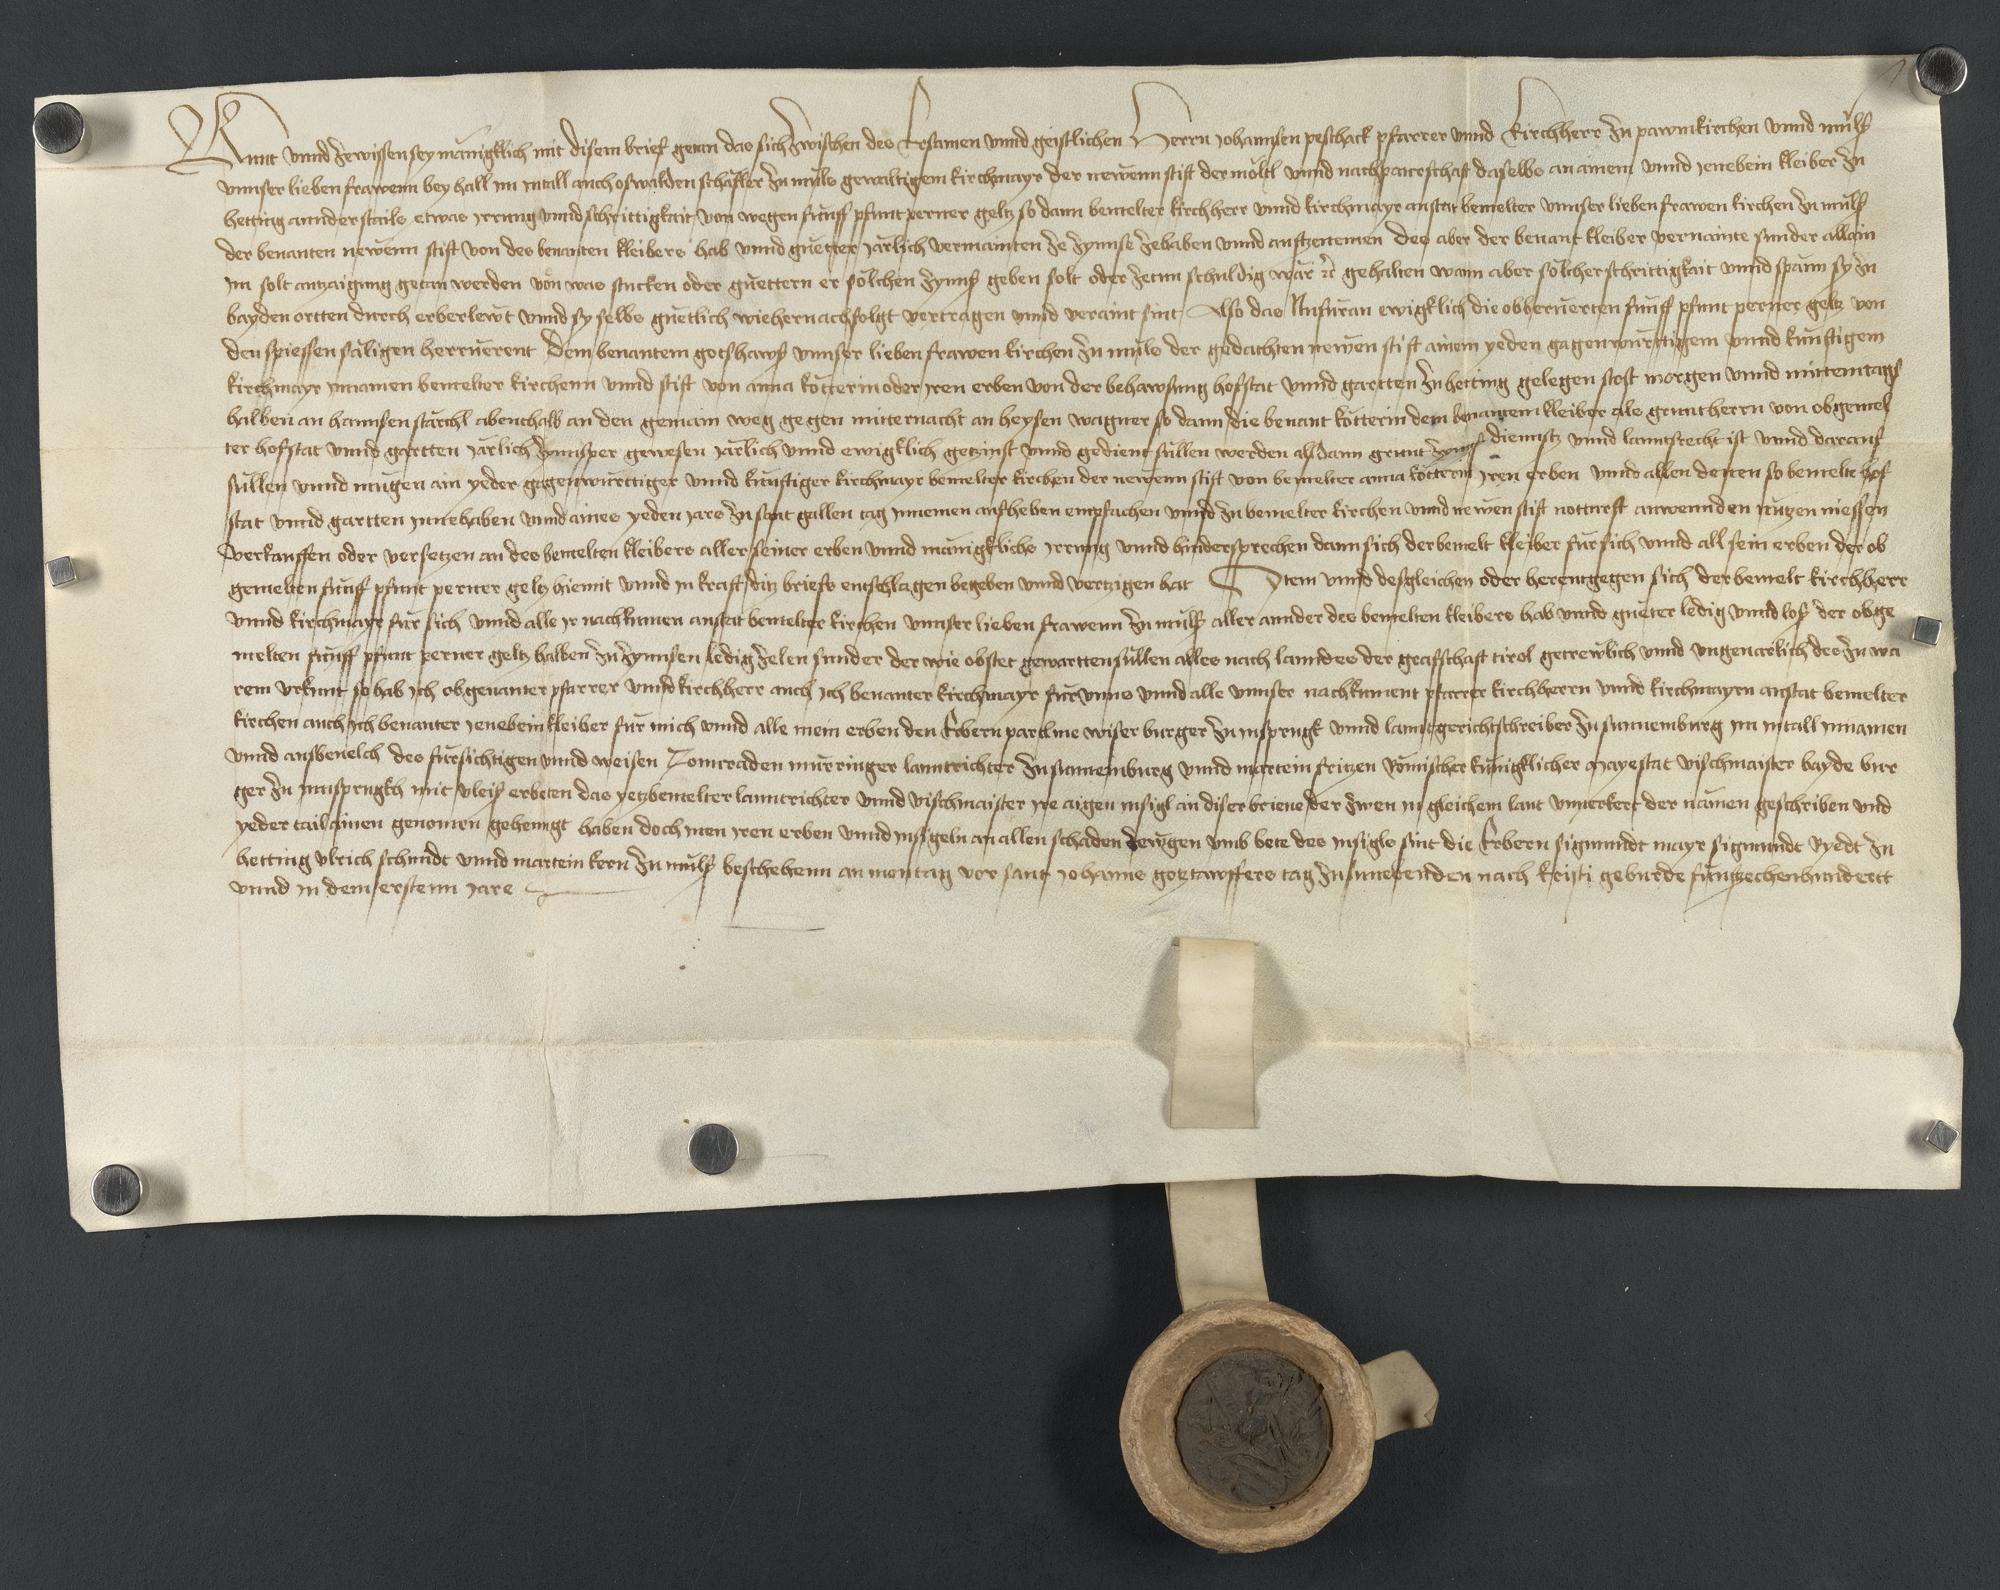 Kunt vnnd zewissen sey mänigklich mit disem brief getan das sich zwischen des Ersamen vnnd geistlichen Herrn Johannsen peschack pfarrer vnnd kirchherr zu pawmkirchen vnnd müls
vnnser lieben frawenn bey hall im Intall auch oswalden schäfler zu müls gewaltigem kirchmayr der newenn stift der möltl vnnd nachpaurschaft daselbs an ainem vnnd Jenebein kleiber zu
hetting annderstails etwas Irrung vnnd schrittigkait von wegen fünff pfunt perner geltz so dann bemelter kirchherr vnnd kirchmayr anstat bemelter vnnser lieben frawen kirchen zu müls
der benanten newenn stift von des benanten kleibers hab vnnd guetter Järlich vermainten ze zynnse zehaben vnnd aufzenemen des aber der benant kleiber vernainte sunder allain
Im solt antzaigung getan werden von was stucken oder guettern er sölchen zynns geben solt oder zetun schuldig wär etc gehalten wann aber sölcher schrittigkait vnnd spänn sy zu
bayden ortten durch erberlewt vnnd sy selbs guetlich wiehernachfolgt vertragen vnnd veraint sint Also das Nufüran ewigklich die obberuerten fünff pfunt perner geltz von
den spiessen säligen herruerent dem benantem gotshaws vnnser lieben frawen kirchen zu müls der gedachten newen stift ainem yeden gagenwürttigem vnnd künftigem
kirchmayr Innamen bemelter kirchenn vnnd stift von anna kötterin oder Iren erben von der behawsung hofstat vnnd gartten zu hetting gelegen stost morgen vnnd mittemtags
halben an hannsen stärchl abenthalb an den gemain weg gegen mitternacht an heysen wagner so dann die benant kötterin dem benantem kleiber als gruntherrn von obgemel
ter hofstat vnnd gartten Järlich zynnsper gewesen Järlich vnnd ewigklich getzinst vnnd gedient süllen werden als dann grunt zynns dienntz vnnd lanntsrecht ist vnnd darauf
süllen vnnd mügen ain yeder gagenwürttiger vnnd künftiger kirchmayr bemelter kirchen der newenn stift von bemelter anna kötterin Iren erben vnnd allen denen so bemelte hof
stat vnnd gartten Innehaben vnnd aines yeden Jars zu sant gallen tag Innemen aufheben empfachen vnnd zu bemelter kirchen vnnd newen stift notturft anwennden nutzen niessen
verkauffen oder versetzen an des bemelten kleibers aller seiner erben vnnd mänigklichs Irrung vnnd hindersprechen dann sich der bemelt kleiber für sich vnnd all sein erben der ob
gemelten fünff pfunt perner geltz hiemit vnnd in kraft ditz briefs entschlagen begeben vnnd vertzigen hat Item vnnd desgleichen oder herentgegen sich der bemelt kirchherr
vnnd kirchmayr für sich vnnd alle Ir nachkumen anstat bemelter kirchen vnnser lieben frawenn zu müls aller annder des bemelten kleibers hab vnnd gueter ledig vnnd los der obge
melten fünff pfunt perner geltz halben zu zynnsen ledig zelen sunder der wie obstet gewartten süllen alles nach lanndes der grafschaft tirol getrewlich vnnd vngeuarlich des zu wa
rem vrkunt so hab Ich obgenanter pfarrer vnnd kirchherr auch Ich benanter kirchmayr für vnns vnnd alle vnnser nachkument pfarrer kirchherrn vnnd kirchmayrn anstat bemelter
kirchen auch Ich benanter Jenebein kleiber für mich vnnd alle mein erben den Erbern partlme wiser burger zu Insprugk vnnd lanntgerichtschreiber zu sunnemburg im Intall Innamen
vnnd ausbeuelch des fürsichtigen vnnd weisen Conraden mürringer lanntrichter zu sunnemburg vnnd martein fritzen Römischer künigklicher Mayestat vischmaister bayde bur
ger zu Innsprugkh mit vleis erbeten das yetzbemelter lanntrichter vnnd vischmaister Ire aigen Insigl an diser brieue der zwen in gleichem laut vnuerkert der namen geschriben vnd
yeder tail ainen genomen gehenngt haben doch Inen Iren erben vnnd Insigeln an allen schaden zewgen vmb bete des Insigls sint die Erbern sigmundt mayr sigmundt Ryedt zu
hetting vlrich schmidt vnnd martein kern zu müls beschehenn an montag vor sant Johanns gotztawffers tag zu sunebenden nach kristi geburde fünftzechenhundertt
vnnd in dem erstenn Jare